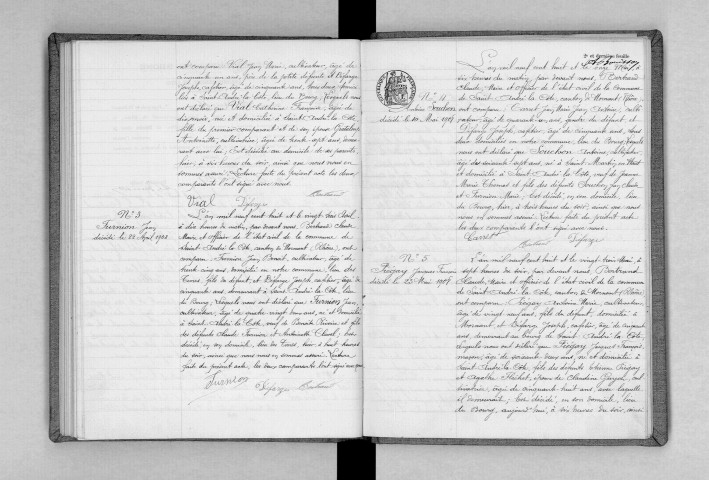 ont comparu Vial Jean Marie, cultivateur, âgé de
cinquante un ans, père de la petite défunte et Défarge
Joseph, cafetier, âgé de cinquante ans, tous deux domici-
liés à Saint André la Côte, lieu du Bourg, lesquels nous
ont déclaré que Vial Catherine Françoise, âgée de
dix mois, née et domiciliée à Saint André la Côte,
fille du premier comparant et de son épouse
Antoinette, cultivatrice, âgée de trente sept ans, demeu-
rant avec lui; est décédée au domicile de ses parents
hier, à six heures du soir, ainsi que nous nous en
sommes assuré. Lecture faite du présent acte les deux
comparants l'ont signé avec nous.
Vial Défarge Bertrand
N° 3
Furnion Jean
décédé le 22 Avril 1908
L'an mil neuf cent huit et le vingt trois Avril
à dix heures du matin, par devant nous, Bertrand Claude
Maire et officier de l'état civil de la commune de
Saint André la Côte, canton de Mornant (Rhône), ont
comparu Furnion Jean Benoît, cultivateur, âgé de
trente cinq ans, domicilié en notre commune, lieu des
fils du défunt, et Défarge Joseph cafetier, âgé de
cinquante ans, demeurant à Saint André la Côte, lieu
du Bourg; lesquels nous ont déclaré que Furnion Jean,
cultivateur, âgé de quatre vingt deux ans, né et domicilié
à Saint André la Côte, veuf de Benoîte et fils
des défunts Claude Furnion et Antoinette
décédé, en son domicile, lieu des hier à huit heures
du soir, ainsi que nous nous en sommes assuré. Lecture
faite du présent acte, les deux comparants l'ont signé avec nous
Furnion Défarge Bertrand
2e et dernière feuille
N° 4
décédé le 10 Mai 1908
L'an mil neuf cent huit et le onze Mai, à
six heures du matin, par devant nous, Bertrand
Claude, Maire et officier de l'état civil de la commune
de Saint André la Côte, canton de Mornant, Rhône,
ont comparu Carret Jean Marie culti-
vateur, âgé de quarante ans, gendre du défunt et
Défarge Joseph, cafetier, âgé de cinquante ans, tous
deux domiciliés en notre commune, lieu du Bourg, lesquels
nous ont déclaré que Antoine,
âgé de soixante sept ans, né à Saint Martin en Haut
et domicilié à Saint André la Côte, veuf de Jeanne
Marie et fils des défunts Jean Claude
et Furnion Marie, est décédé, en son domicile, lieu
du Bourg, hier, à trois heures du soir, ainsi que nous
nous en sommes assuré. Lecture faite du présent acte
les deux comparants l'ont signé avec nous.
Carret Bertrand Défarge
N° 5
Piégay Jacques François
décédé le 23 Mai 1908
L'an mil neuf cent huit et le vingt trois Mai, à
sept heures du soir, par devant nous Bertrand
Claude, Maire et officier de l'état civil de la commune
de Saint André la Côte, canton de Mornant, Rhône
ont comparu Piégay Antoine Marie, cultivateur,
âgé de vingt neuf ans, fils du défunt, domicilié à
Mornant, et Défarge Joseph, cafetier, âgé de cinquante
ans, demeurant au bourg de Saint André la Côte,
lesquels nous ont déclaré que Piégay Jacques François,
maçon, âgé de soixante deux ans, né et domicilié à
Saint André la Côte, fils des défunts Etienne Piégay
et Agathe époux de Claudine
âgée de cinquante huit ans, avec laquelle
il demeurait; est décédé, en son domicile, lieu
du Bourg, aujourd'hui, à six heures du soir, ainsi